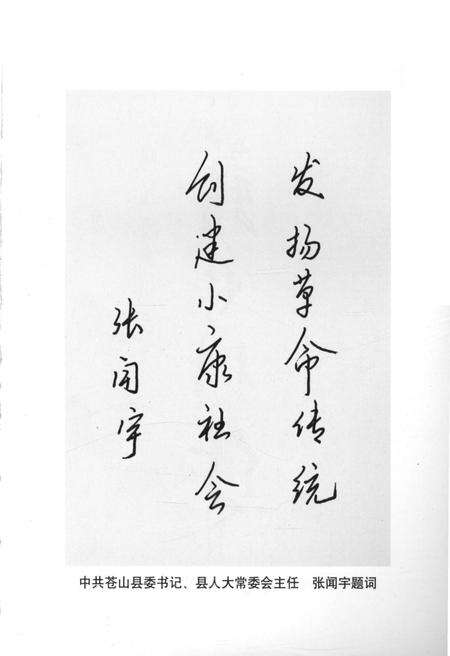 发扬革命传统
创建小康社会
张闻宇
中共苍山县委书记、县人大常委会主任　张闻宇题词